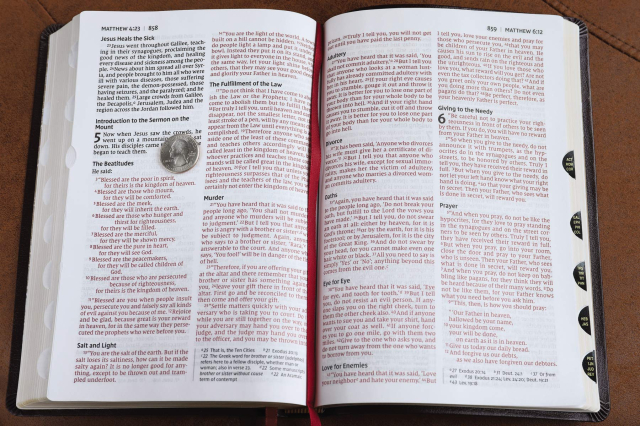 MATTHEW 4:23 | 858
Jesus Heals the Sick
23Jesus went throughout Galilee, teach-
ing in their synagogues, proclaiming the
good news of the kingdom, and healing
every disease and sickness among the peo-
ple. 24News about him spread all over Syr-
ia, and people brought to him all who were
ill with various diseases, those suffering
severe pain, the demon-possessed, those
having seizures, and the paralyzed; and he
healed them. 25Large crowds from Galilee,
the Decapolis, Jerusalem, Judea and the
region across the Jordan followed him.
Introduction to the Sermon on the
Mount
5 Now when Jesus saw the crowds, he
went up on a mountainside
down. His disciples came
began to teach them.
The Beatitudes
He said:
3"Blessed are the poor in spirit,
for theirs is the kingdom of heaven.
4Blessed are those who mourn,
for they will be comforted.
5Blessed are the meek,
for they will inherit the earth.
6Blessed are those who hunger and
thirst for righteousness,
for they will be filled.
7Blessed are the merciful,
for they will be shown mercy.
8Blessed are the pure in heart,
for they will see God.
9Blessed are the peacemakers,
for they will be called children of
God.
10Blessed are those who are persecuted
because of righteousness,
for theirs is the kingdom of heaven.
11"Blessed are you when people insult
you, persecute you and falsely say all kinds
of evil against you because of me. 12Rejoice
and be glad, because great is your reward
in heaven, for in the same way they perse-
cuted the prophets who were before you.
Salt and Light
13"You are the salt of the earth. But if the
salt loses its saltiness, how can it be made
salty again? It is no longer good for any-
thing, except to be thrown out and tram-
pled underfoot.
14"You are the light of the world. A town
built on a hill cannot be hidden. 15Neither
do people light a lamp and put it under a
bowl. Instead they put it on its stand, and
it gives light to everyone in the house. 16In
the same way, let your light shine before
others, that they may see your good deeds
and glorify your Father in heaven.
The Fulfillment of the Law
17"Do not think that I have come to abol-
ish the Law or the Prophets; I have not
come to abolish them but to fulfill them.
18For truly I tell you, until heaven and earth
disappear, not the smallest letter, not the
least stroke of a pen, will by any means dis-
appear from the Law until everything is
accomplished. 19Therefore anyone who sets
aside one of the least of these commands
and teaches others accordingly will be
called least in the kingdom of heaven, but
whoever practices and teaches these com-
mands will be called great in the kingdom
of heaven. 20For I tell you that unless your
righteousness surpasses that of the Phari-
sees and the teachers of the law, you will
certainly not enter the kingdom of heaven.
Murder
21"You have heard that it was said to the
people long ago, 'You shall not murder,
and anyone who murders will be subject
to judgment.' 22But I tell you that anyone
who is angry with a brother or sister will
be subject to judgment. Again, anyone
who says to a brother or sister, 'Raca,' is
answerable to the court. And anyone who
says, 'You fool!' will be in danger of the fire
of hell.
23"Therefore, if you are offering your gift
at the altar and there remember that your
brother or sister has something against
you, 24leave your gift there in front of the
altar. First go and be reconciled to them;
then come and offer your gift.
25"Settle matters quickly with your ad-
versary who is taking you to court. Do it
while you are still together on the way, or
your adversary may hand you over to the
judge, and the judge may hand you over
to the officer, and you may be thrown into
25 That is, the Ten Cities
22 The Greek word for brother or sister (adelphos)
refers here to a fellow disciple, whether man or
woman; also in verse 23.
21 Exodus 20:13
22 Some manuscripts
brother or sister without cause
22 An Aramaic
term of contempt
859 | MATTHEW 6:12
prison. 26Truly I tell you, you will not get
out until you have paid the last penny.
Adultery
27"You have heard that it was said, 'You
shall not commit adultery.' 28But I tell you
that anyone who looks at a woman lust-
fully has already committed adultery with
her in his heart. 29If your right eye causes
you to stumble, gouge it out and throw it
away. It is better for you to lose one part of
your body than for your whole body to be
thrown into hell. 30And if your right hand
causes you to stumble, cut it off and throw
it away. It is better for you to lose one part
of your body than for your whole body to
go into hell.
Divorce
31"It has been said, 'Anyone who divorces
his wife must give her a certificate of di-
vorce.' 32But I tell you that anyone who
divorces his wife, except for sexual immo-
rality, makes her the victim of adultery,
and anyone who marries a divorced wom-
an commits adultery.
Oaths
33"Again, you have heard that it was said
to the people long ago, 'Do not break your
oath, but fulfill to the Lord the vows you
have made.' 34But I tell you, do not swear
an oath at all: either by heaven, for it is
God's throne; 35or by the earth, for it is his
footstool; or by Jerusalem, for it is the city
of the Great King. 36And do not swear by
your head, for you cannot make even one
hair white or black. 37All you need to say is
simply 'Yes' or 'No'; anything beyond this
comes from the evil one.
Eye for Eye
38"You have heard that it was said, 'Eye
for eye, and tooth for tooth.' 39But I tell
you, do not resist an evil person. If any-
one slaps you on the right cheek, turn to
them the other cheek also. 40And if anyone
wants to sue you and take your shirt, hand
over your coat as well. 41If anyone forces
you to go one mile, go with them two
miles. 42Give to the one who asks you, and
do not turn away from the one who wants
to borrow from you.
Love for Enemies
43"You have heard that it was said, 'Love
your neighbor and hate your enemy.' 44But
I tell you, love your enemies and pray for
those who persecute you, 45that you may
be children of your Father in heaven. He
causes his sun to rise on the evil and the
good, and sends rain on the righteous and
the unrighteous. 46If you love those who
love you, what reward will you get? Are not
even the tax collectors doing that? 47And if
you greet only your own people, what are
you doing more than others? Do not even
pagans do that? 48Be perfect, therefore, as
your heavenly Father is perfect.
Giving to the Needy
6 "Be careful not to practice your righ-
teousness in front of others to be seen
by them. If you do, you will have no reward
from your Father in heaven.
2"So when you give to the needy, do not
announce it with trumpets, as the hypo-
crites do in the synagogues and on the
streets, to be honored by others. Truly I
tell you, they have received their reward in
full. 3But when you give to the needy, do
not let your left hand know what your right
hand is doing, 4so that your giving may be
in secret. Then your Father, who sees what
is done in secret, will reward you.
Prayer
5"And when you pray, do not be like the
hypocrites, for they love to pray standing
in the synagogues and on the street cor-
ners to be seen by others. Truly I tell you,
they have received their reward in full.
6But when you pray, go into your room,
close the door and pray to your Father,
who is unseen. Then your Father, who sees
what is done in secret, will reward you.
7And when you pray, do not keep on bab-
bling like pagans, for they think they will
be heard because of their many words. 8Do
not be like them, for your Father knows
what you need before you ask him.
9"This, then, is how you should pray:
"'Our Father in heaven,
hallowed be your name,
10your kingdom come,
your will be done,
on earth as it is in heaven.
11Give us today our daily bread.
12And forgive us our debts,
as we also have forgiven our debtors.
27 Exodus 20:14
31 Deut. 24:1
37 Or from
evil
38 Exodus 21:24; Lev. 24:20; Deut. 19:21
43 Lev. 19:18
ACT
ROM
COR